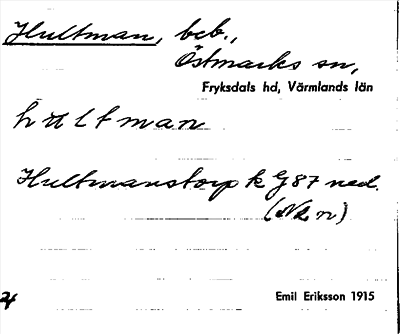 Hultman, beb.,
Östmarks sn,
Fryksdals hd, Värmlands län
hultman
Hultmanstorp k G87 ned.
Emil Eriksson 1915